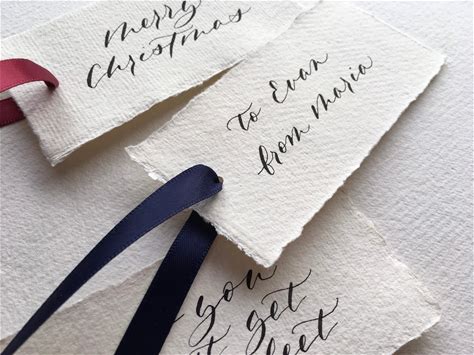 merry
Christmas
to Evan
from maria
you
get